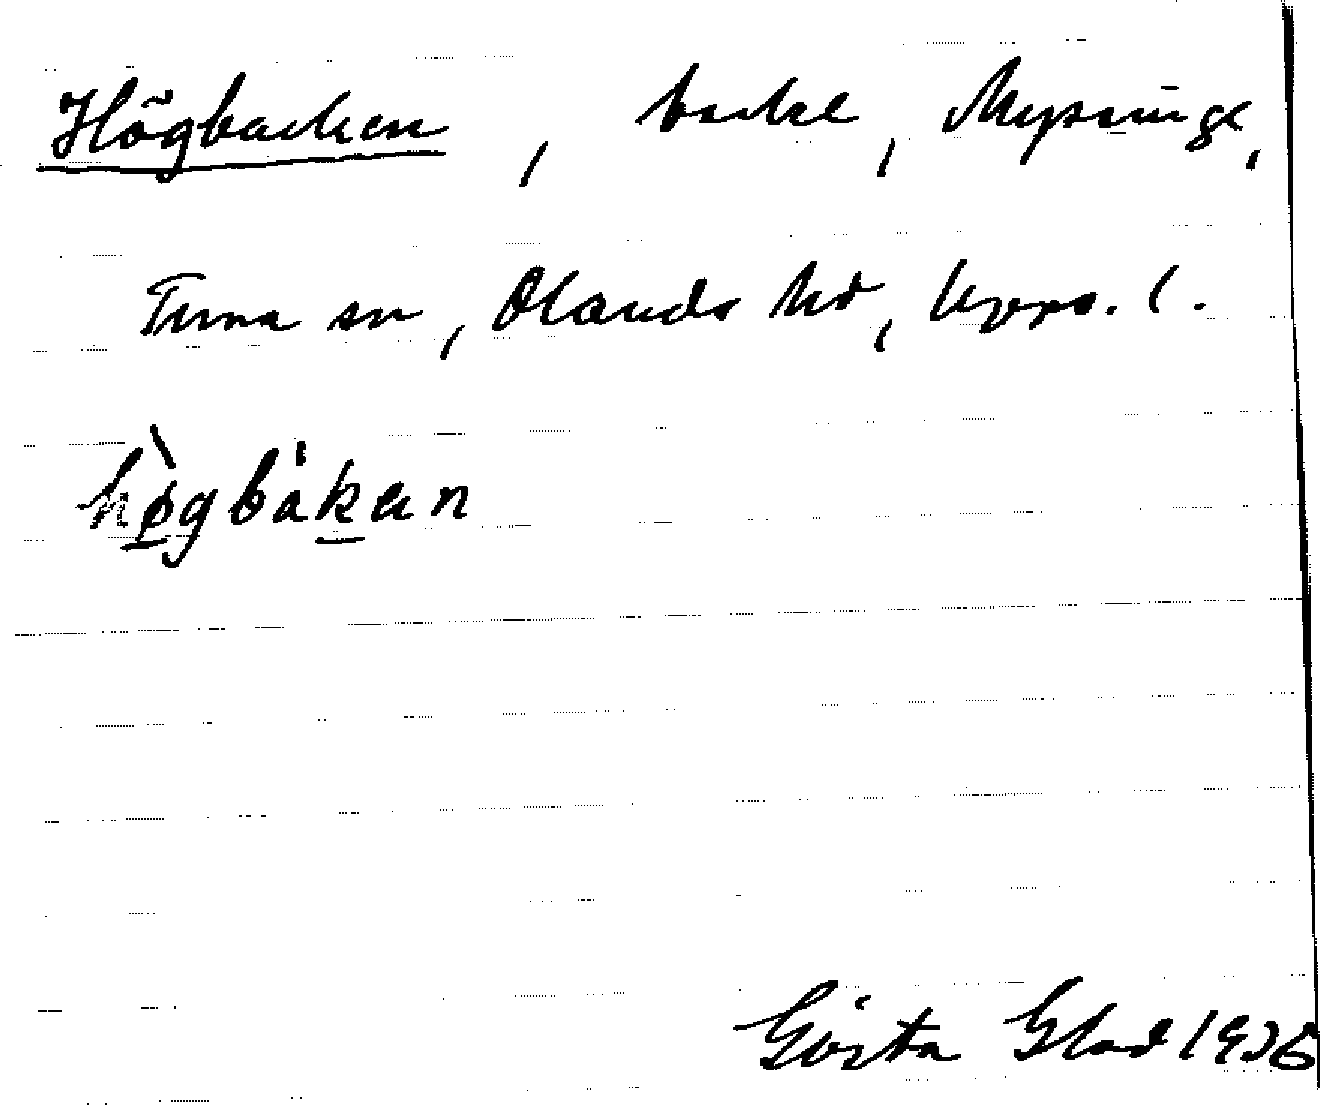 Högbacken, backe, Mysinge,
Tuna sn, Olands hd, Upps. l.
hø̀gbàkan
Gösta Glad 1935